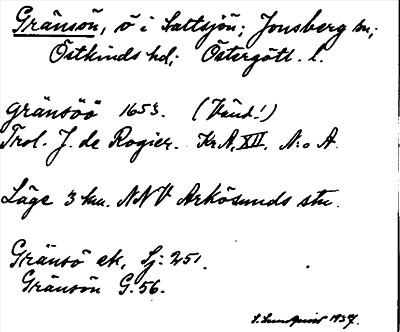 Gränsön, ö i Saltsjön; Jonsberg sn;
Östkinds hd; Östergötl. l.
Gränsöö 1653. (Vänd!)
Trol. J. de Rogier. Kr.A. XII. N:o A.
Läge 3 km. NNV Arkösunds stn.
Gränsö ek, Sj: 251.
Gränsön G. 56.
S. Lundqvist 1934.